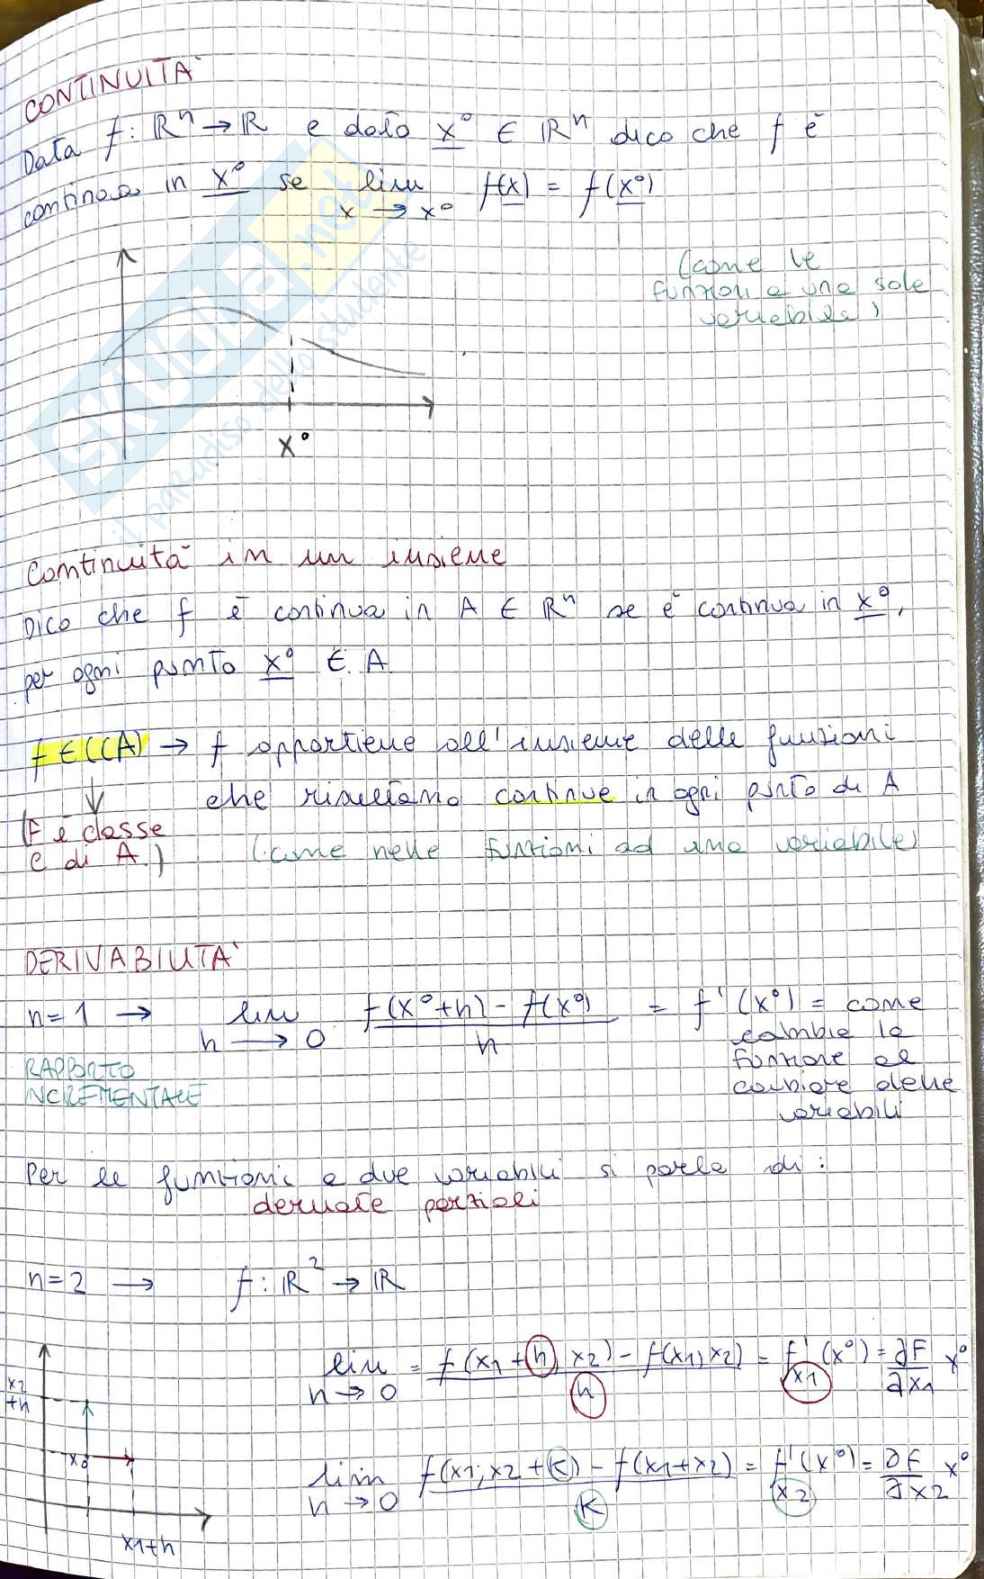 CONTINUITA'
Data f: ℝⁿ → ℝ e dato x° ∈ ℝⁿ dico che f è
continua in x° se lim f(x) = f(x°)
x → x°
(come le
funzioni a una sola
variabile)
x°
SKUOLA.net
il paradiso dello studente
Continuità in un insieme
Dico che f è continua in A ∈ ℝⁿ se è continua in x°,
per ogni punto x° ∈ A
f ∈ C(A) → f appartiene all'insieme delle funzioni
che risultano continue in ogni punto di A
(F è classe
C di A.)
(come nelle funzioni ad una variabile)
DERIVABILITA'
n=1 → lim f(x°+h) - f(x°) / h = f'(x°) = come
h → 0
cambia la
funzione al
cambiare delle
variabili
RAPPORTO
INCREMENTALE
Per le funzioni a due variabili si parla di:
derivate parziali
n=2 → f: ℝ² → ℝ
lim = f(x1+h, x2) - f(x1, x2) / h = f'x1 (x°) = ∂F/∂x1 x°
h → 0
lim f(x1; x2+k) - f(x1+x2) / k = f'x2 (x°) = ∂F/∂x2 x°
h → 0
x2
+h
x°
x1+h